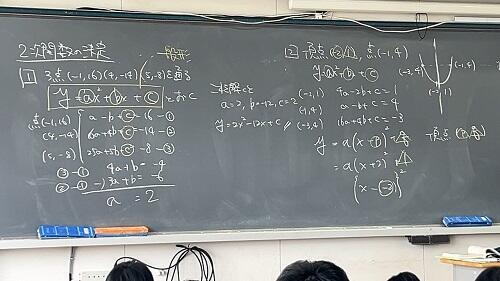 2次関数の決定
1 3点(-1,16)(4,-14)(5,-8)を通る
一般形
y=ax²+bx+cとおく
(-1,16) a-b+c=16-①
(4,-14) 16a+4b+c=-14-②
(5,-8) 25a+5b+c=-8-③
③-① 4a+b=-4
②-① -)3a+b=-6
a=2
これを解くと
a=2, b=-12, c=2
y=2x²-12x+c
2 頂点(-2,1), 点(-1,4)
y=ax²+bx+c
(-2,1) 4a-2b+c=1
(-1,4) a-b+c=4
(-3,4) 16a+4b+c=-3
y=a(x-p)²+q
頂点(p,q)
=a(x+2)²+1
{x-(-2)}²
(-3,4) (-1,4)
(-2,1)